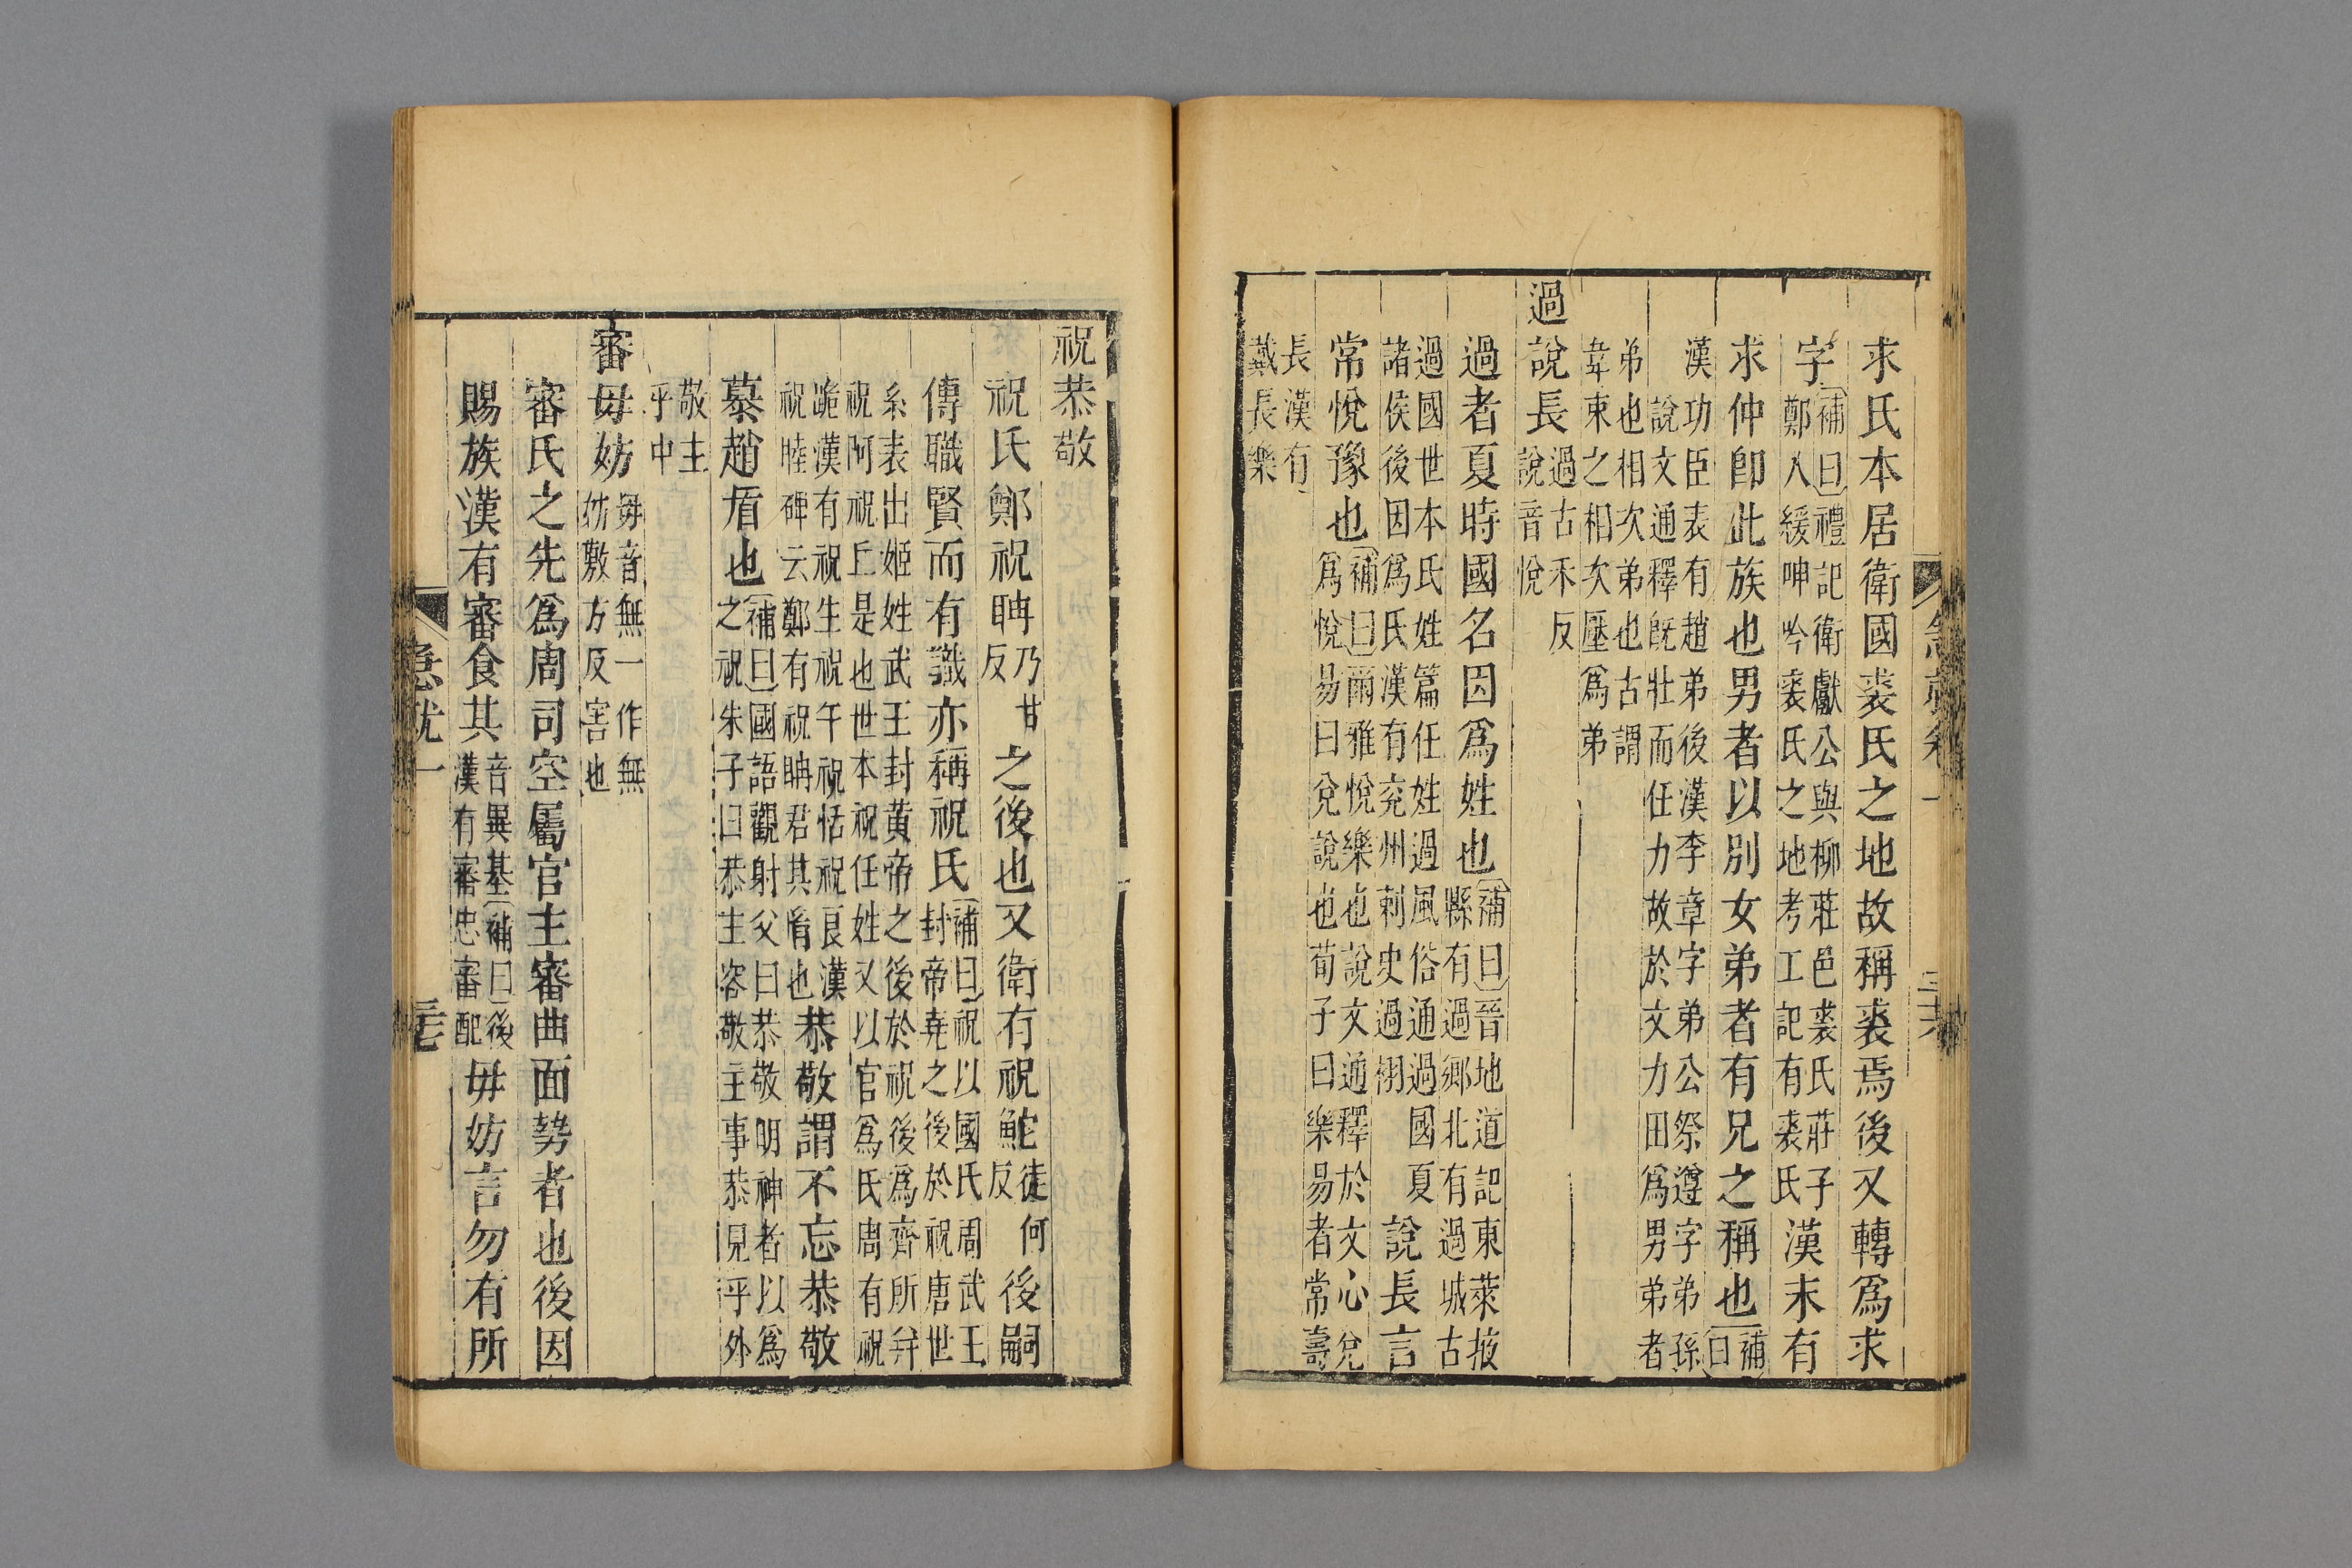 求氏本居衛國裘氏之地故稱裘焉後又轉爲求
字補曰禮記衛獻公與柳莊邑裘氏莊子
鄭人緩呻吟裘氏之地考工記有裘氏漢末有
求仲卽此族也男者以別女弟者有兄之稱也補
曰
漢功臣表有趙弟後漢李章字弟公祭遵字弟孫
說文通釋旣壯而任力故於文力田爲男弟者
弟也相次弟也古謂
韋束之相次壓爲弟
過說長過古禾反
說音悅
過者夏時國名因爲姓也補曰晉地道記東萊掖
縣有過鄉北有過城古
過國世本氏姓篇任姓過風俗通過國夏
諸侯後因爲氏漢有兗州刺史過栩說長言
常悅豫也補曰爾雅悅樂也說文通釋於文心兌
爲悅易曰兌說也荀子曰樂易者常壽
長漢有
戴長樂
急就 一
祝恭敬
祝氏鄭祝聃乃甘
反之後也又衛有祝鮀徒何
反後嗣
傳職賢而有識亦稱祝氏補曰祝以國氏周武王
封帝堯之後於祝唐世
系表出姬姓武王封黃帝之後於祝後爲齊所幷
祝阿祝丘是也世本祝任姓又以官爲氏周有祝
跪漢有祝生祝午祝恬祝良漢
祝睦碑云鄭有祝聃君其胄也恭敬謂不忘恭敬
慕趙盾也補曰國語觀射父曰恭敬明神者以爲
之祝朱子曰恭主容敬主事恭見乎外
敬主
乎中
審毋妨毋音無一作無
妨敷方反害也
審氏之先爲周司空屬官主審曲面勢者也後因
賜族漢有審食其音異基補曰後
漢有審忠審配毋妨言勿有所
急就一